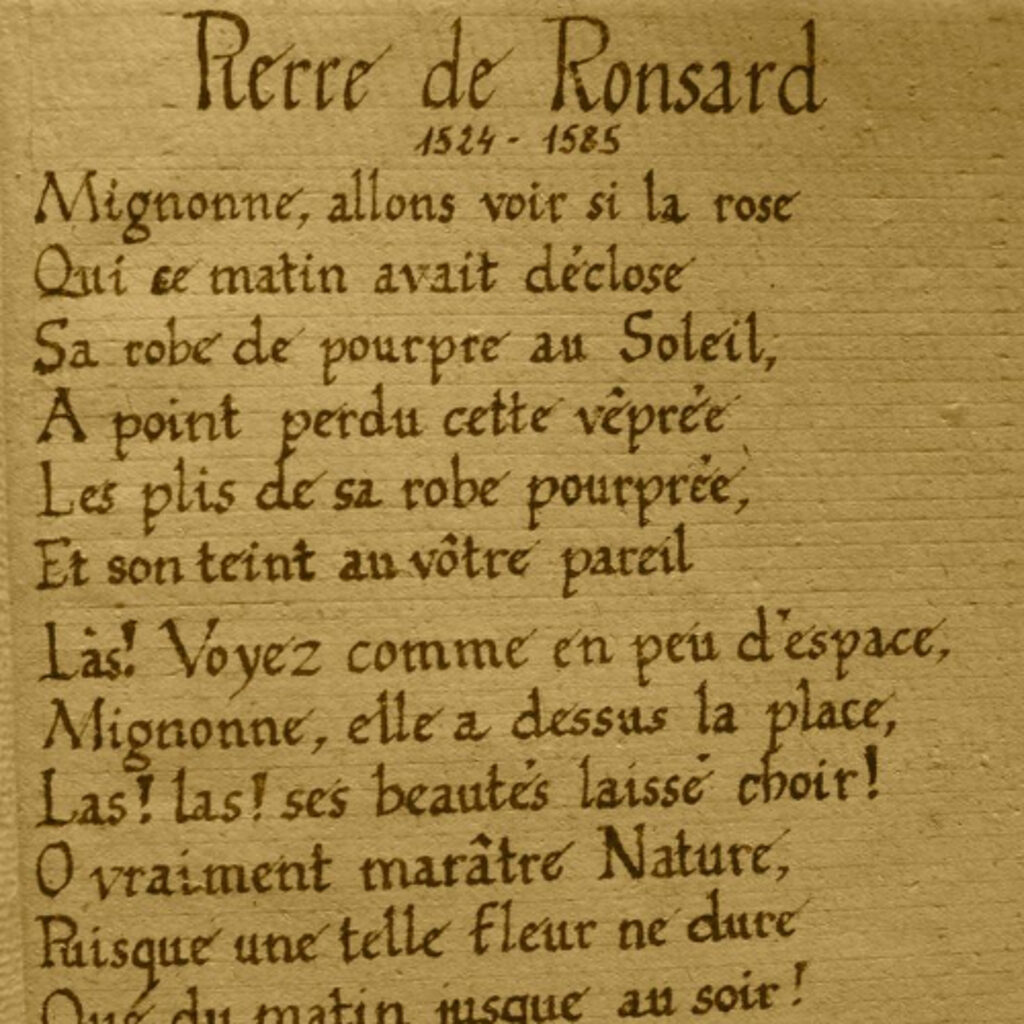 Pierre de Ronsard
1524 - 1585
Mignonne, allons voir si la rose
Qui ce matin avait déclose
Sa robe de pourpre au Soleil,
A point perdu cette vêprée
Les plis de sa robe pourprée,
Et son teint au vôtre pareil
Làs! Voyez comme en peu d'espace,
Mignonne, elle a dessus la place,
Las! las! ses beautés laissé choir!
O vraiment marâtre Nature,
Puisque une telle fleur ne dure
Que du matin jusque au soir!